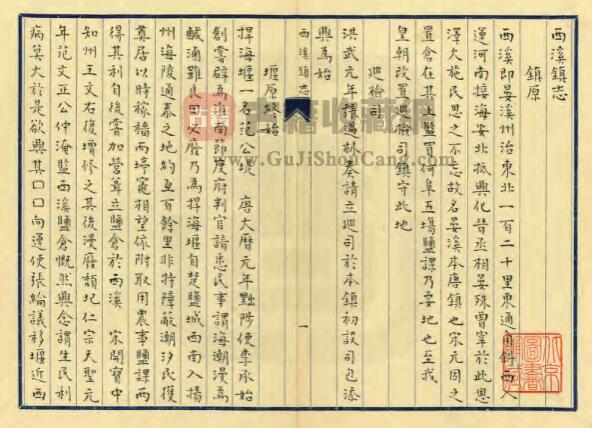 西溪鎮志
鎮原
西溪即晏溪州治東北一百二十里東通角斜西入
運河南接海安北抵興化昔丞相晏殊曾宰於此恩
澤大施民思之不忘故名晏溪本唐鎮也宋元因之
置倉在其上監買何阜五塲鹽課乃要地也至我
皇朝改置巡檢司鎮守此地
巡檢司
洪武元年 林奏請立巡司於本鎮初設司也添
興為始
西溪鎮志
一
堰原 始
捍海堰一名范公堤 唐大曆元年黜陟使李承始
創霅辟為淮南節度府判官請悉民事謂海潮漫為
鹹滷雖良田必廢乃為捍海堰自楚鹽城西南入揚
州海陵通泰之地約亘百餘里非特障蔽潮汐民獲
奠居以時稼穡而竈相望依附取用農事鹽課兩
得其利自後霅加營葺立鹽倉於西溪 宋開寶中
知州王文右復增修之其後漫廢頹圮仁宗天聖元
年范文正公仲淹監西溪鹽倉慨然興念謂生民利
病莫大於是欲興其口口向運使張綸議移堰近西
古籍收藏网
www.GuJiShouCang.com
北京
圖書